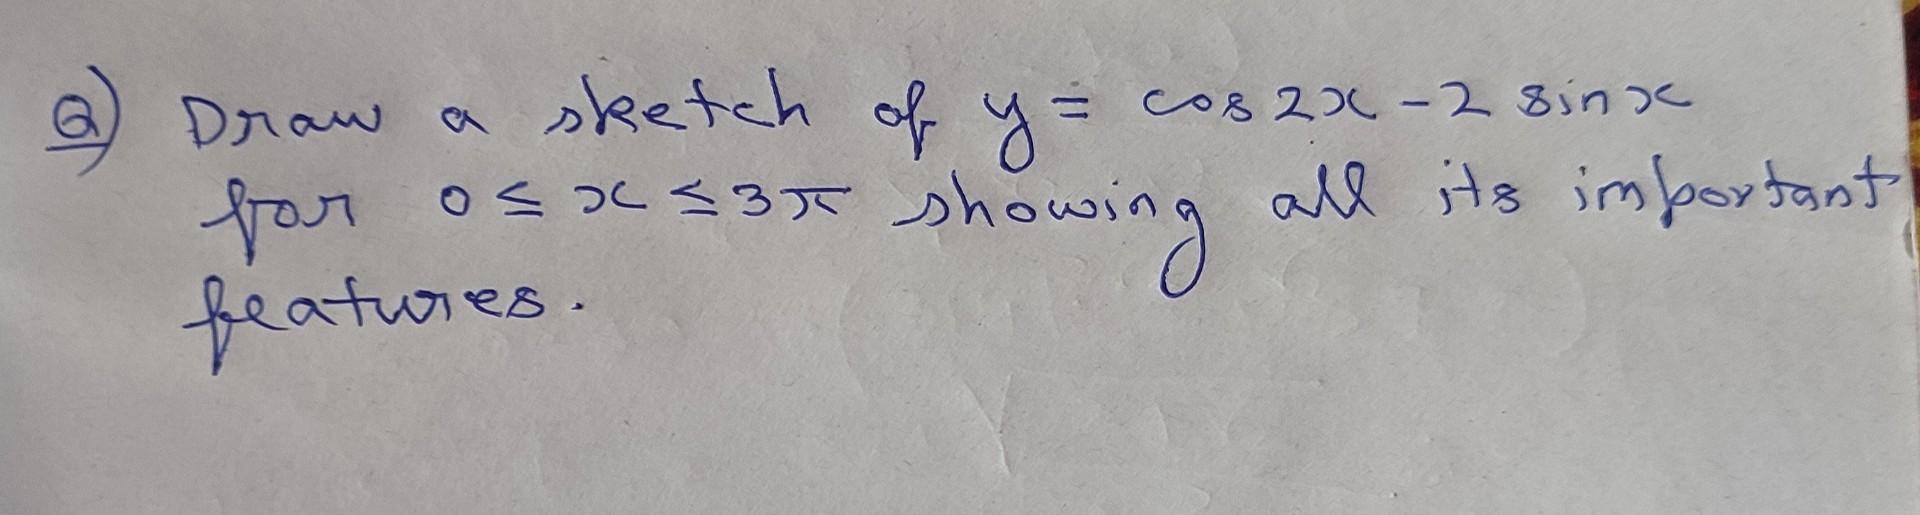 Q) Draw a sketch of y = cos 2x - 2 sin x
for 0 ≤ x ≤ 3π showing all its important
features.